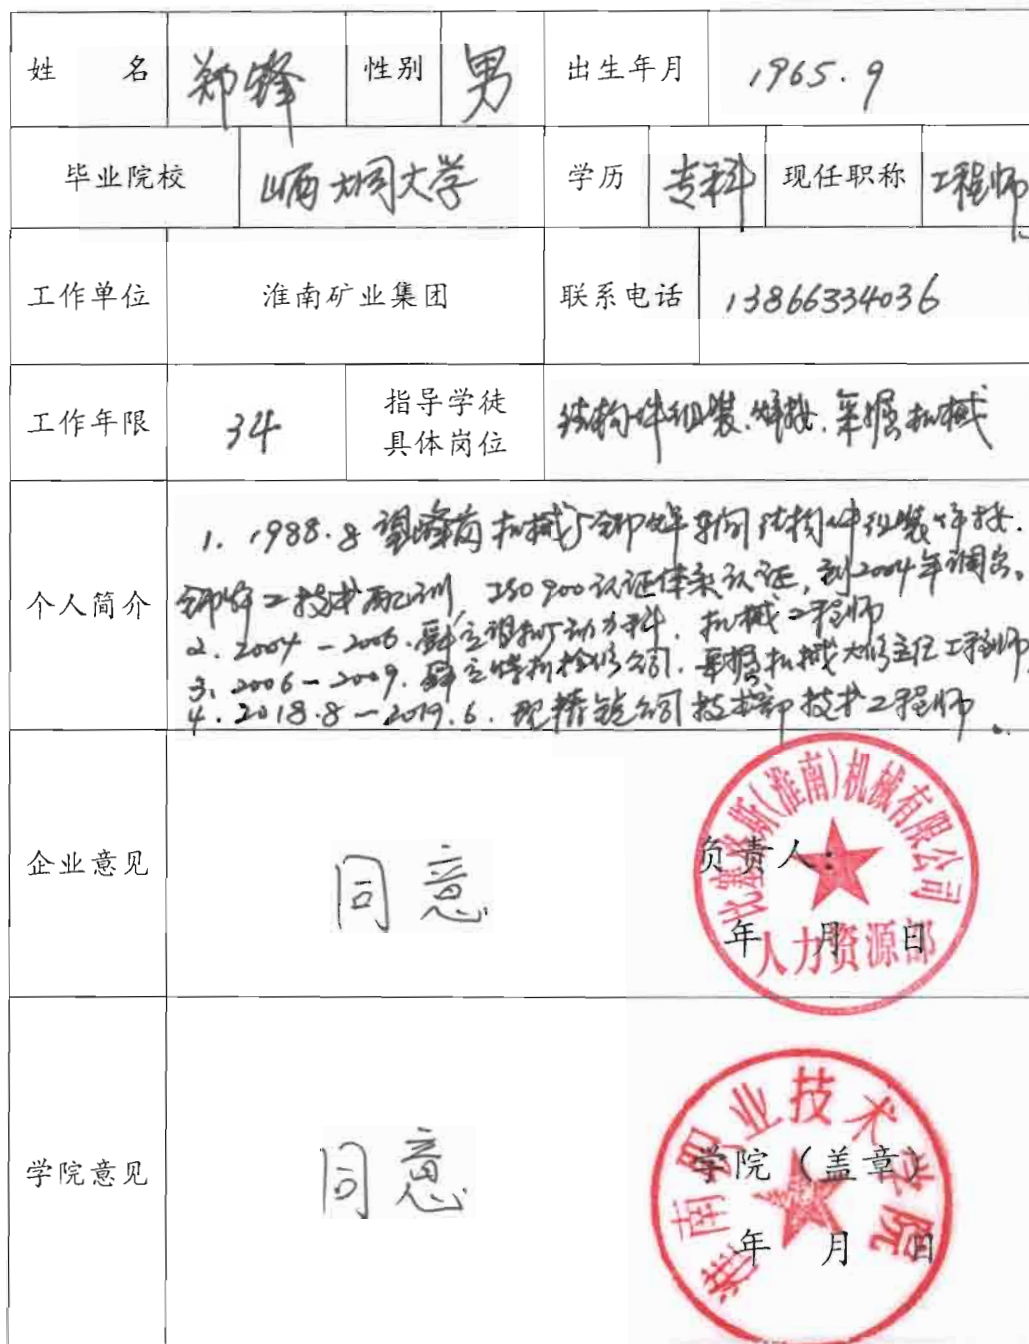 姓 名 郑锋 性别 男 出生年月 1965.9
毕业院校 山西大同大学 学历 专科 现任职称 工程师
工作单位 淮南矿业集团 联系电话 13866334036
工作年限 34 指导学徒 具体岗位 结构件组装.焊接.采掘机械
个人简介
1. 1988.8 望峰岗机械厂铆焊车间结构件组装焊接.
铆焊工技术培训, ISO900认证体系认证, 到2004年调出。
2. 2004-2006. 动力科. 机械工程师
3. 2006-2009. 检修公司. 采掘机械大修主任工程师
4. 2018.8-2019.6. 现 公司技术部技术工程师.
企业意见 同意
负责人:
年 月 日
(淮南)机械有限公司
人力资源部
学院意见 同意
学院(盖章)
年 月 日
淮南职业技术学院